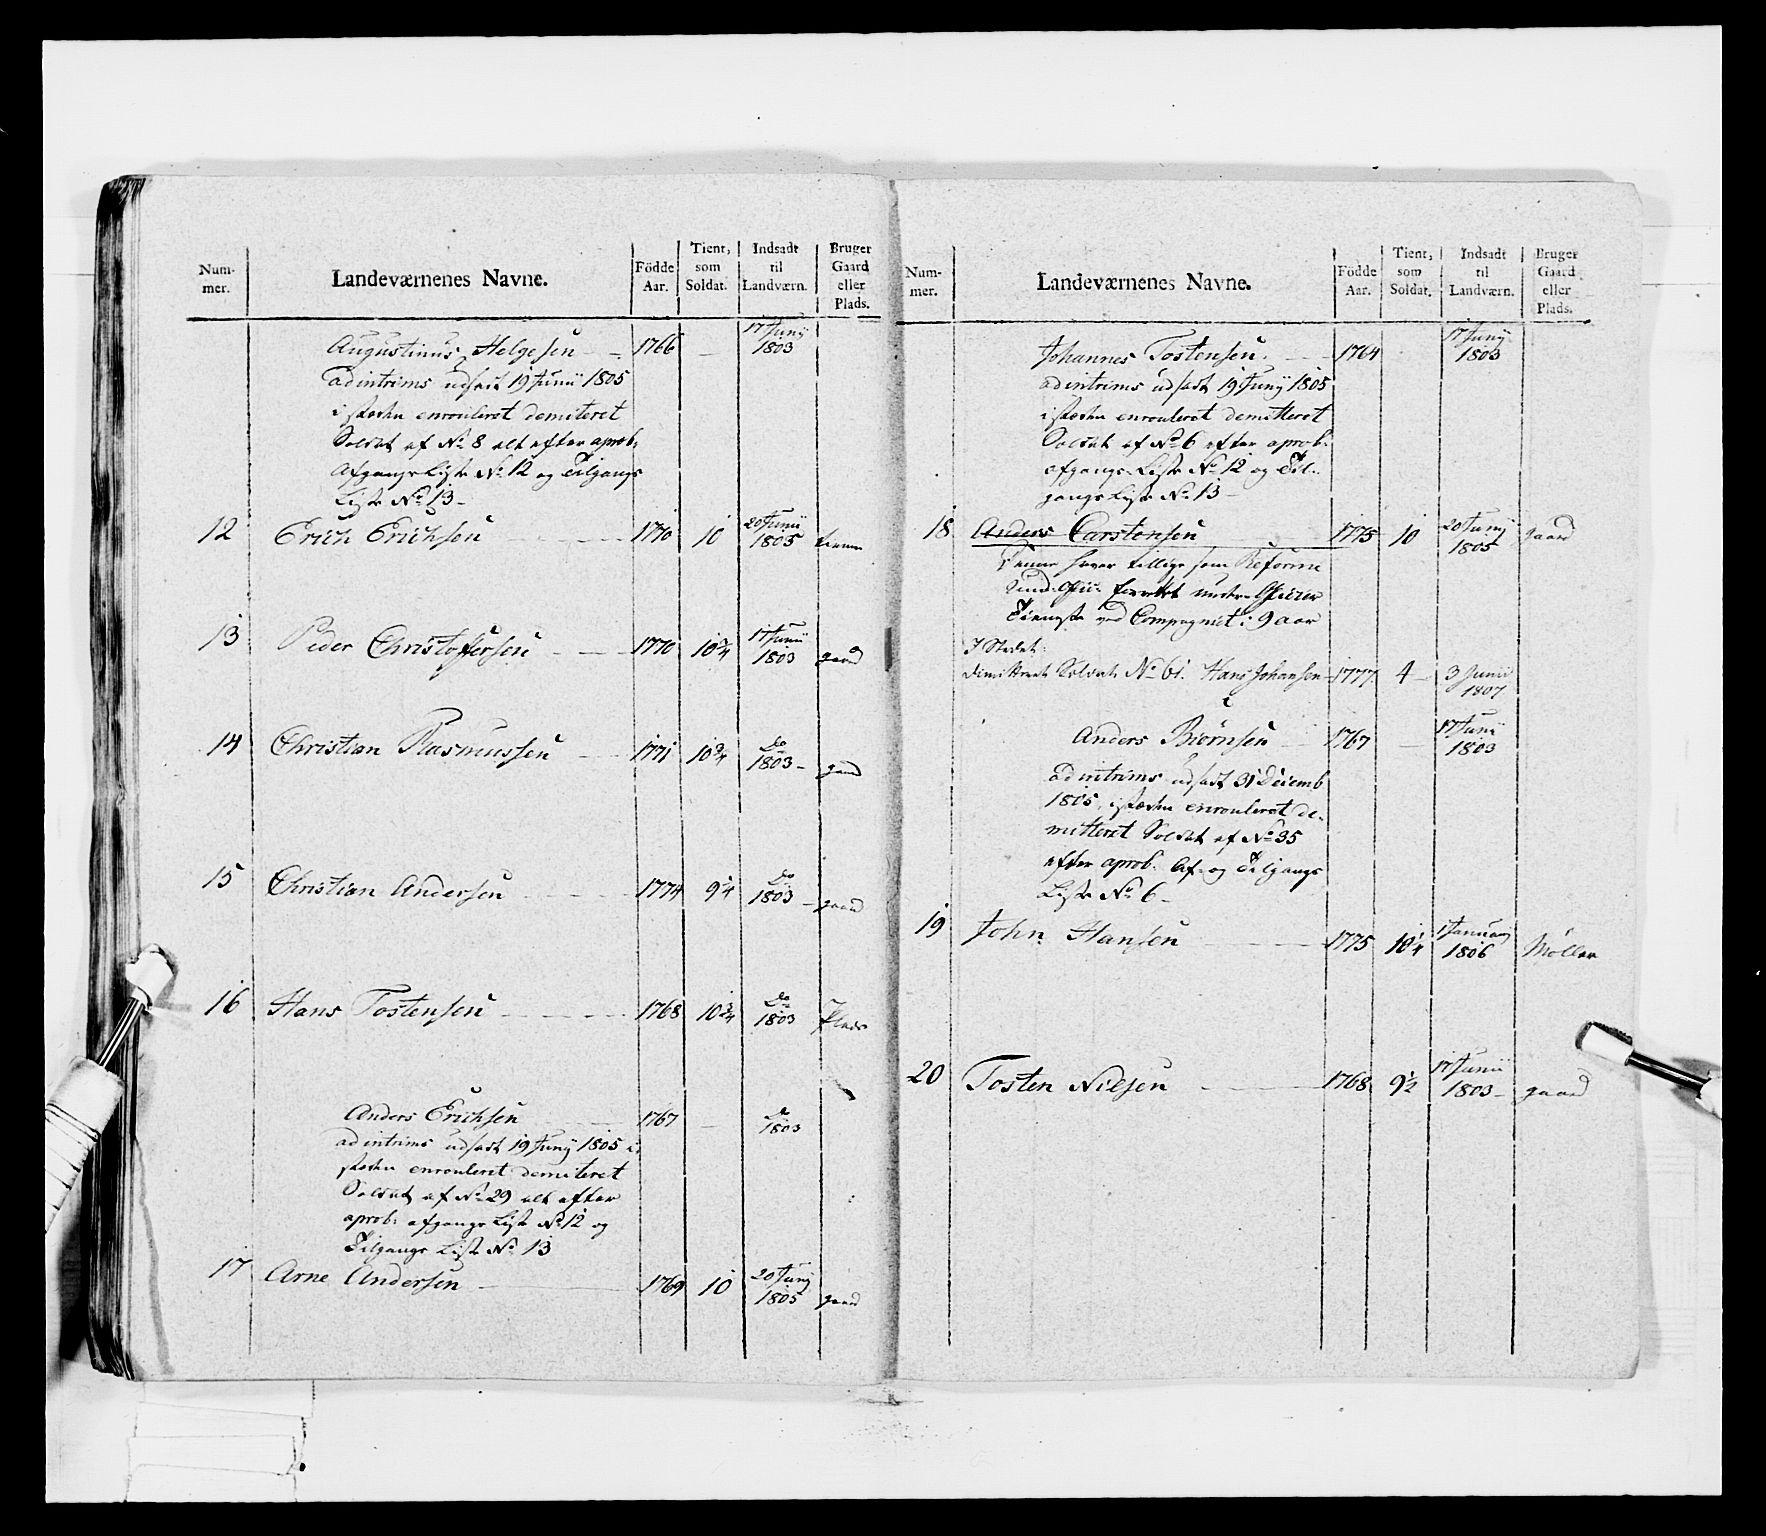 Num-
mer.
Landeværnenes Navne.
Födde
Aar.
Tient,
som
Soldat.
Indsadt
til
Landværn.
Bruger
Gaard
eller
Plads.
Augustinus Helgesen 1766 — 17 Junij 1803
ad intrims udsadt 19 Junii 1805
i stæden enrouleret demiteret
Soldat af No 8 alt efter aprob:
Afgangs Liste No 12 og Tilgangs
Liste No 13
12 Erich Erichsen 1770 10 20 Junii 1805
13 Peder Christoffersen 1770 10 3/4 17 Junii 1803 gaard
14 Christian Rasmussen 1771 10 3/4 Do 1803 gaard
15 Christian Andersen 1774 9 1/4 Do 1803 gaard
16 Hans Tostensen 1768 10 3/4 Do 1803 Plads
Anders Erichsen 1767 — do 1803
ad intrims udsadt 19 Junij 1805 i
stæden enrouleret demiteret
Soldat af No 29 alt efter
aprob: afgangs Liste No 12 og
Tilgangs Liste No 13
17 Arne Andersen 1769 10 20 Junij 1805 gaard
Num-
mer.
Landeværnenes Navne.
Födde
Aar.
Tient,
som
Soldat.
Indsadt
til
Landværn.
Bruger
Gaard
eller
Plads.
Johannes Tostensen 1764 17 Junij 1803
ad intrims udsadt 19 Junij 1805
i stæden enrouleret demitteret
Soldat af No 6 efter aprob:
afgangs Liste No 12 og Til-
gangs Liste No 13
18 Anders Carstensen 1775 10 20 Junij 1805 gaard
Denne haver tillige som Reforme
under Officier
Tieneste ved Compagniet i 9 aar
I Stedet:
dimitteret Soldat No 61. Hans Johansen 1777 4 3 Junii 1807
Anders Biørnsen 1767 — 17 Junii 1803
ad intrims udsadt 31 Decemb
1805, i stæden enrouleret de-
mitteret Soldat af No 35
efter aprob. Af- og Tilgangs
Liste No 6
19 John Hansen 1775 10 1/4 1 Januarij 1806 Møller
20 Tosten Nielsen 1768 9 1/2 17 Junii 1803 gaard